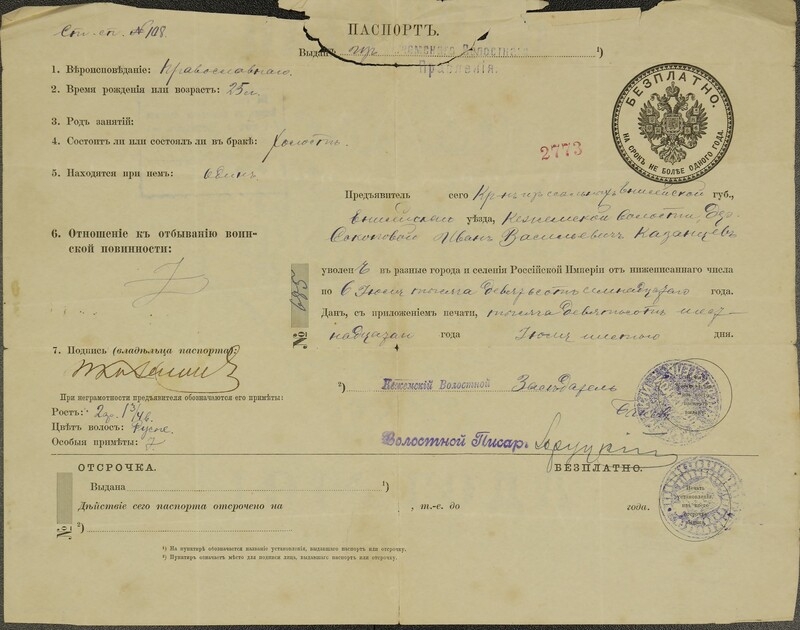 № 108.
ПАСПОРТЪ.
Выданъ Волостного ¹)
Правленія.
1. Вѣроисповѣданіе: Православнаго.
2. Время рожденія или возрастъ: 25 л.
3. Родъ занятій:
4. Состоитъ ли или состоялъ ли въ бракѣ: Холостъ.
5. Находятся при немъ: одинъ
6. Отношеніе къ отбыванію воин-
ской повинности:
БЕЗПЛАТНО.
НА СРОКЪ НЕ БОЛѢЕ ОДНОГО ГОДА.
2773
Предъявитель сего губ.,
уѣзда, Кежемской волости, дер.
Иванъ Васильевичъ Казанцевъ
уволенъ въ разные города и селенія Россійской Имперіи отъ нижеписаннаго числа
по 6 Іюня тысяча девятьсотъ семнадцатаго года.
Данъ, съ приложеніемъ печати, тысяча девятьсотъ шест-
надцатаго года Іюня шестого дня.
№ 685
7. Подпись (владѣльца паспорта):
При неграмотности предъявителя обозначаются его примѣты:
Ростъ: 2 ар.
Цвѣтъ волосъ: Русые.
Особыя примѣты:
²) Кежемскій Волостной Засѣдатель
Волостной Писарь
ОТСРОЧКА.
БЕЗПЛАТНО.
Выдана ¹)
Дѣйствіе сего паспорта отсрочено на , т.-е. до года.
№
²)
Печать
¹) На пунктирѣ обозначается названіе установленія, выдавшаго паспортъ или отсрочку.
²) Пунктиръ означаетъ мѣсто для подписи лица, выдавшаго паспортъ или отсрочку.